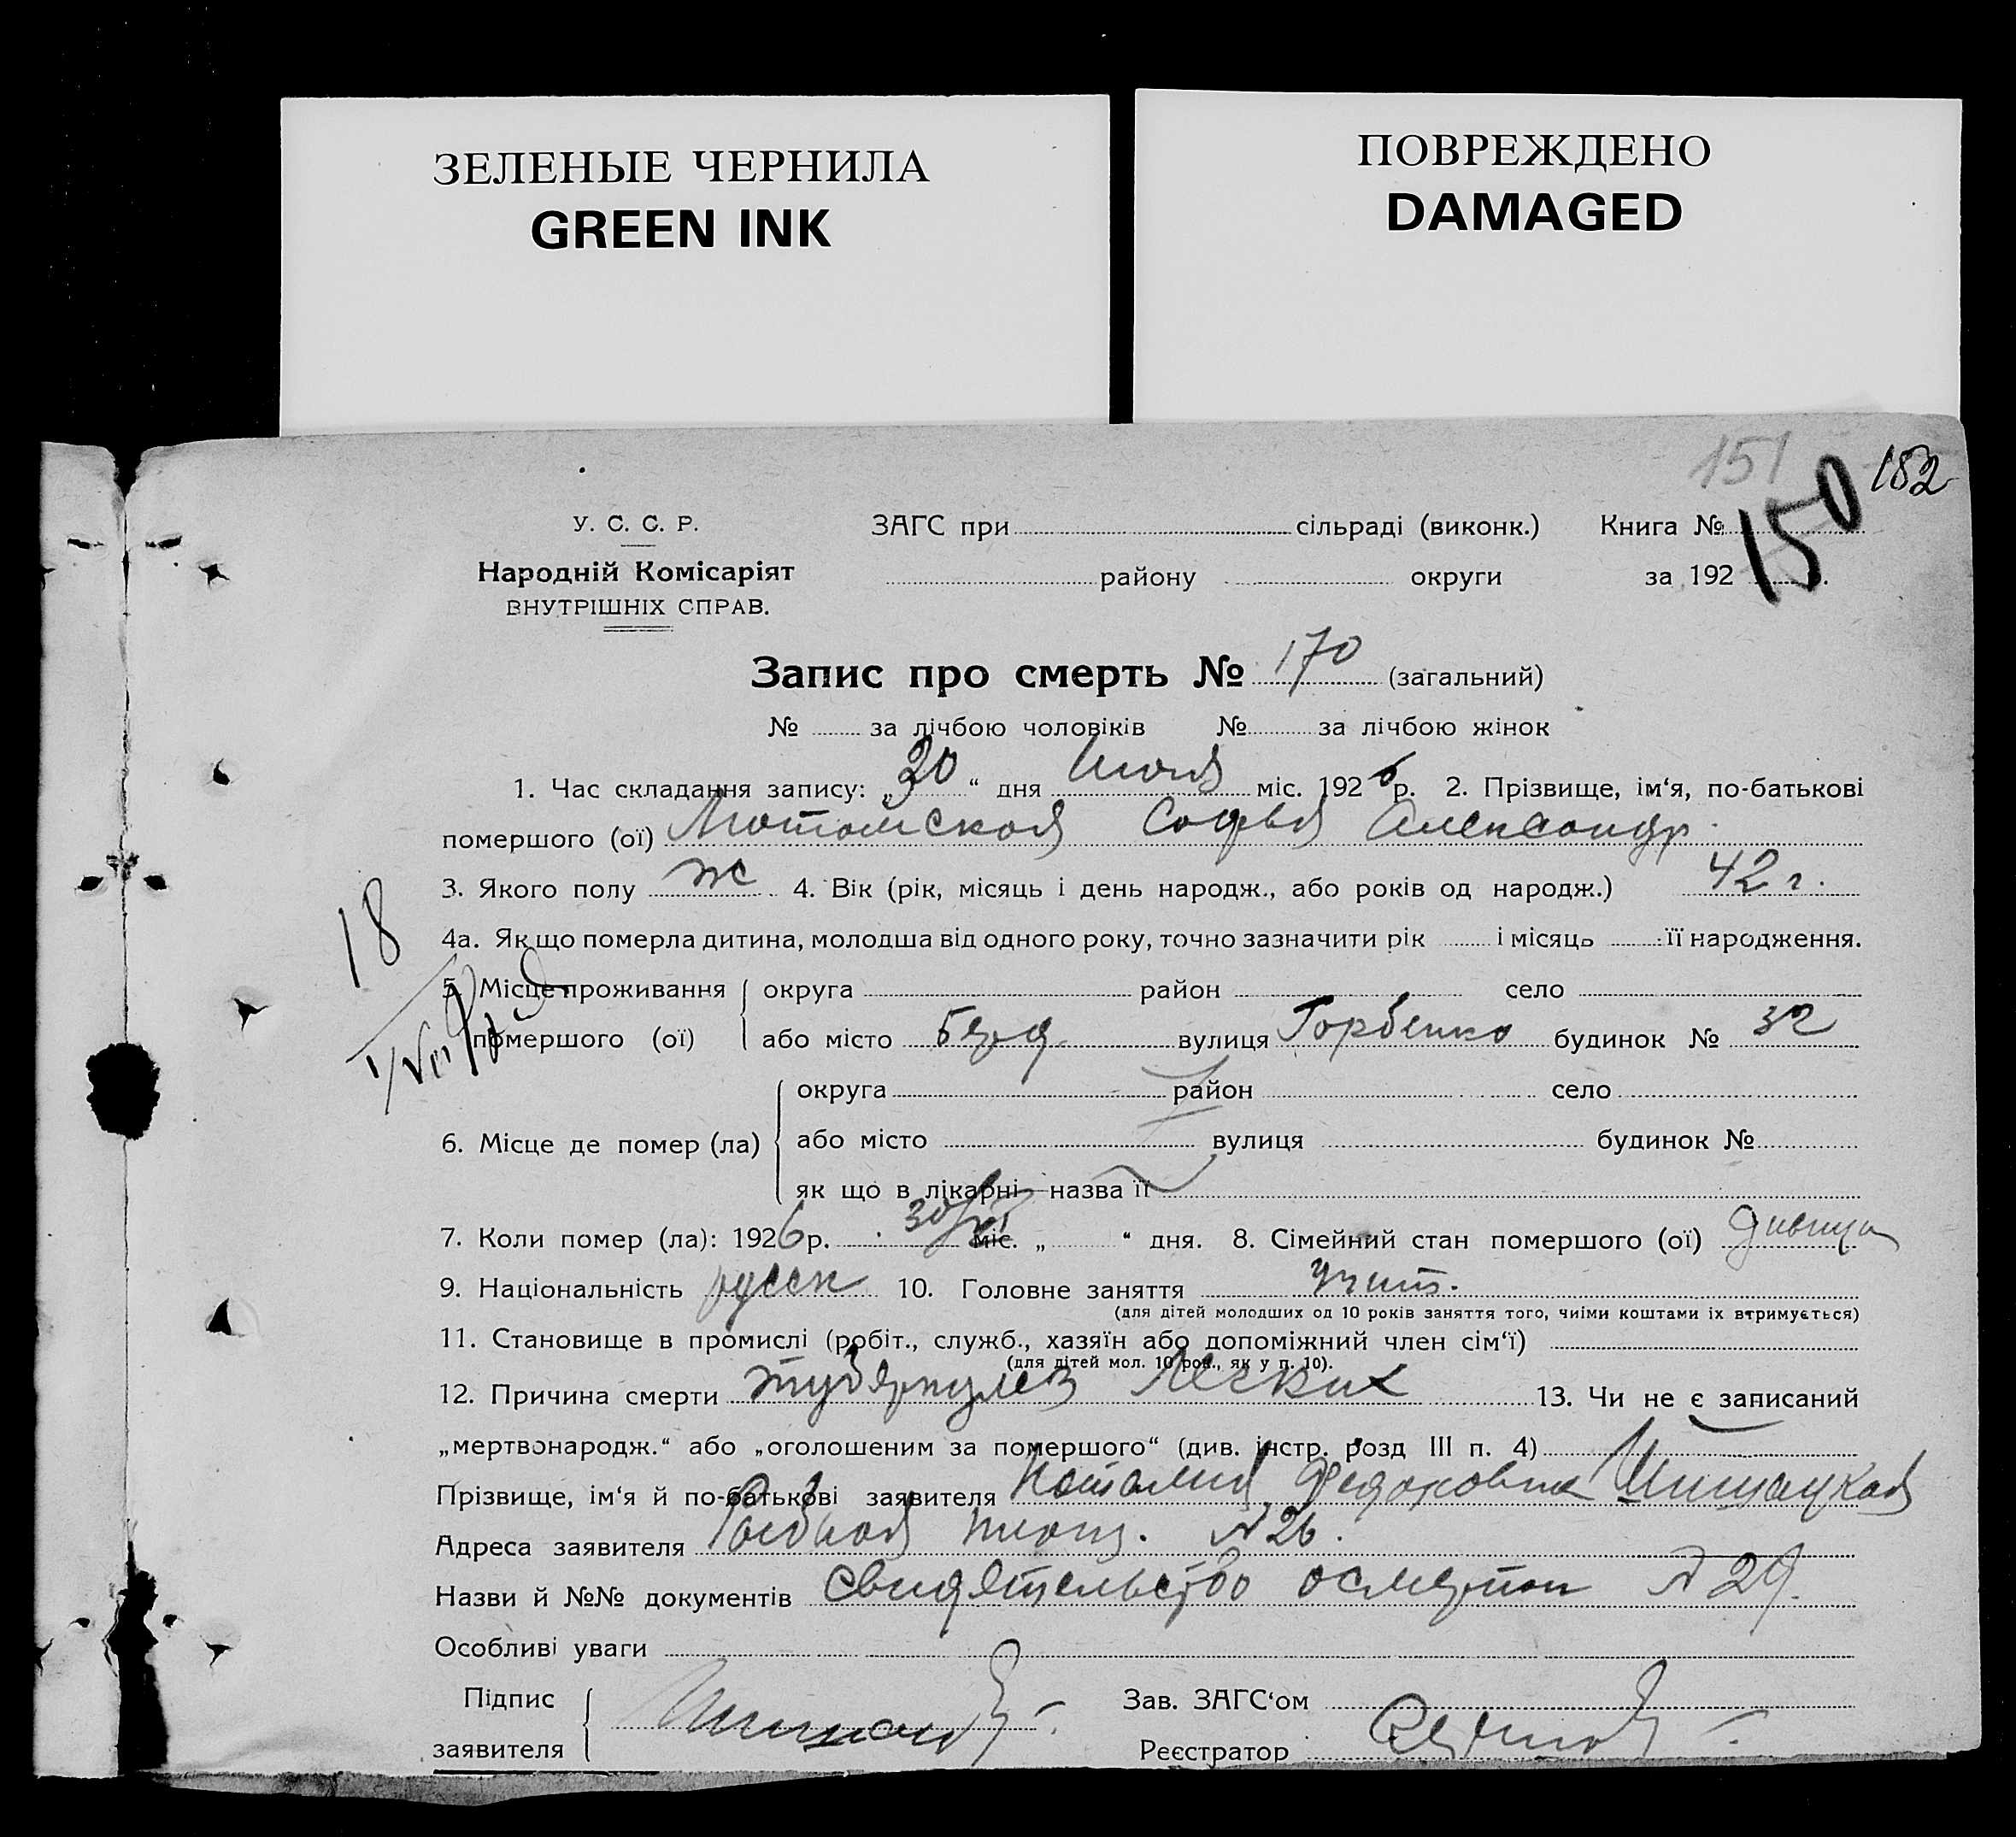 ЗЕЛЕНЫЕ ЧЕРНИЛА
GREEN INK
ПОВРЕЖДЕНО
DAMAGED
151
150
152
У. С. С. Р.
Народній Комісаріят
ВНУТРІШНІХ СПРАВ.
ЗАГС при сільраді (виконк.) Книга №
району округи за 192
Запис про смерть № 170 (загальний)
№ за лічбою чоловіків № за лічбою жінок
1. Час складання запису: „30“ дня Июля міс. 1926 р. 2. Прізвище, ім‘я, по-батькові
помершого (ої) Софья Александр.
3. Якого полу ж 4. Вік (рік, місяць і день народж., або років од народж.) 42 г.
4а. Як що померла дитина, молодша від одного року, точно зазначити рік і місяць її народження.
18
5. Місце проживання округа район село
помершого (ої) або місто вулиця Горбенко будинок № 32
округа район село
6. Місце де помер (ла) або місто вулиця будинок №
як що в лікарні—назва її
7. Коли помер (ла): 1926 р. 30/VII міс. „ “ дня. 8. Сімейний стан помершого (ої) девица
9. Національність русск 10. Головне заняття учит.
(для дітей молодших од 10 років заняття того, чиїми коштами їх втримується)
11. Становище в промислі (робіт., служб., хазяїн або допоміжний член сім‘ї)
(для дітей мол. 10 рок., як у п. 10).
12. Причина смерти туберкулез легких 13. Чи не є записаний
„мертвонародж.“ або „оголошеним за помершого“ (див. інстр. розд III п. 4)
Прізвище, ім‘я й по-батькові заявителя Наталия Федоровна Шишацкая
Адреса заявителя площ. №26.
Назви й №№ документів свидетельство о смерти №29.
Особливі уваги
Підпис
заявителя
Зав. ЗАГС‘ом
Реєстратор